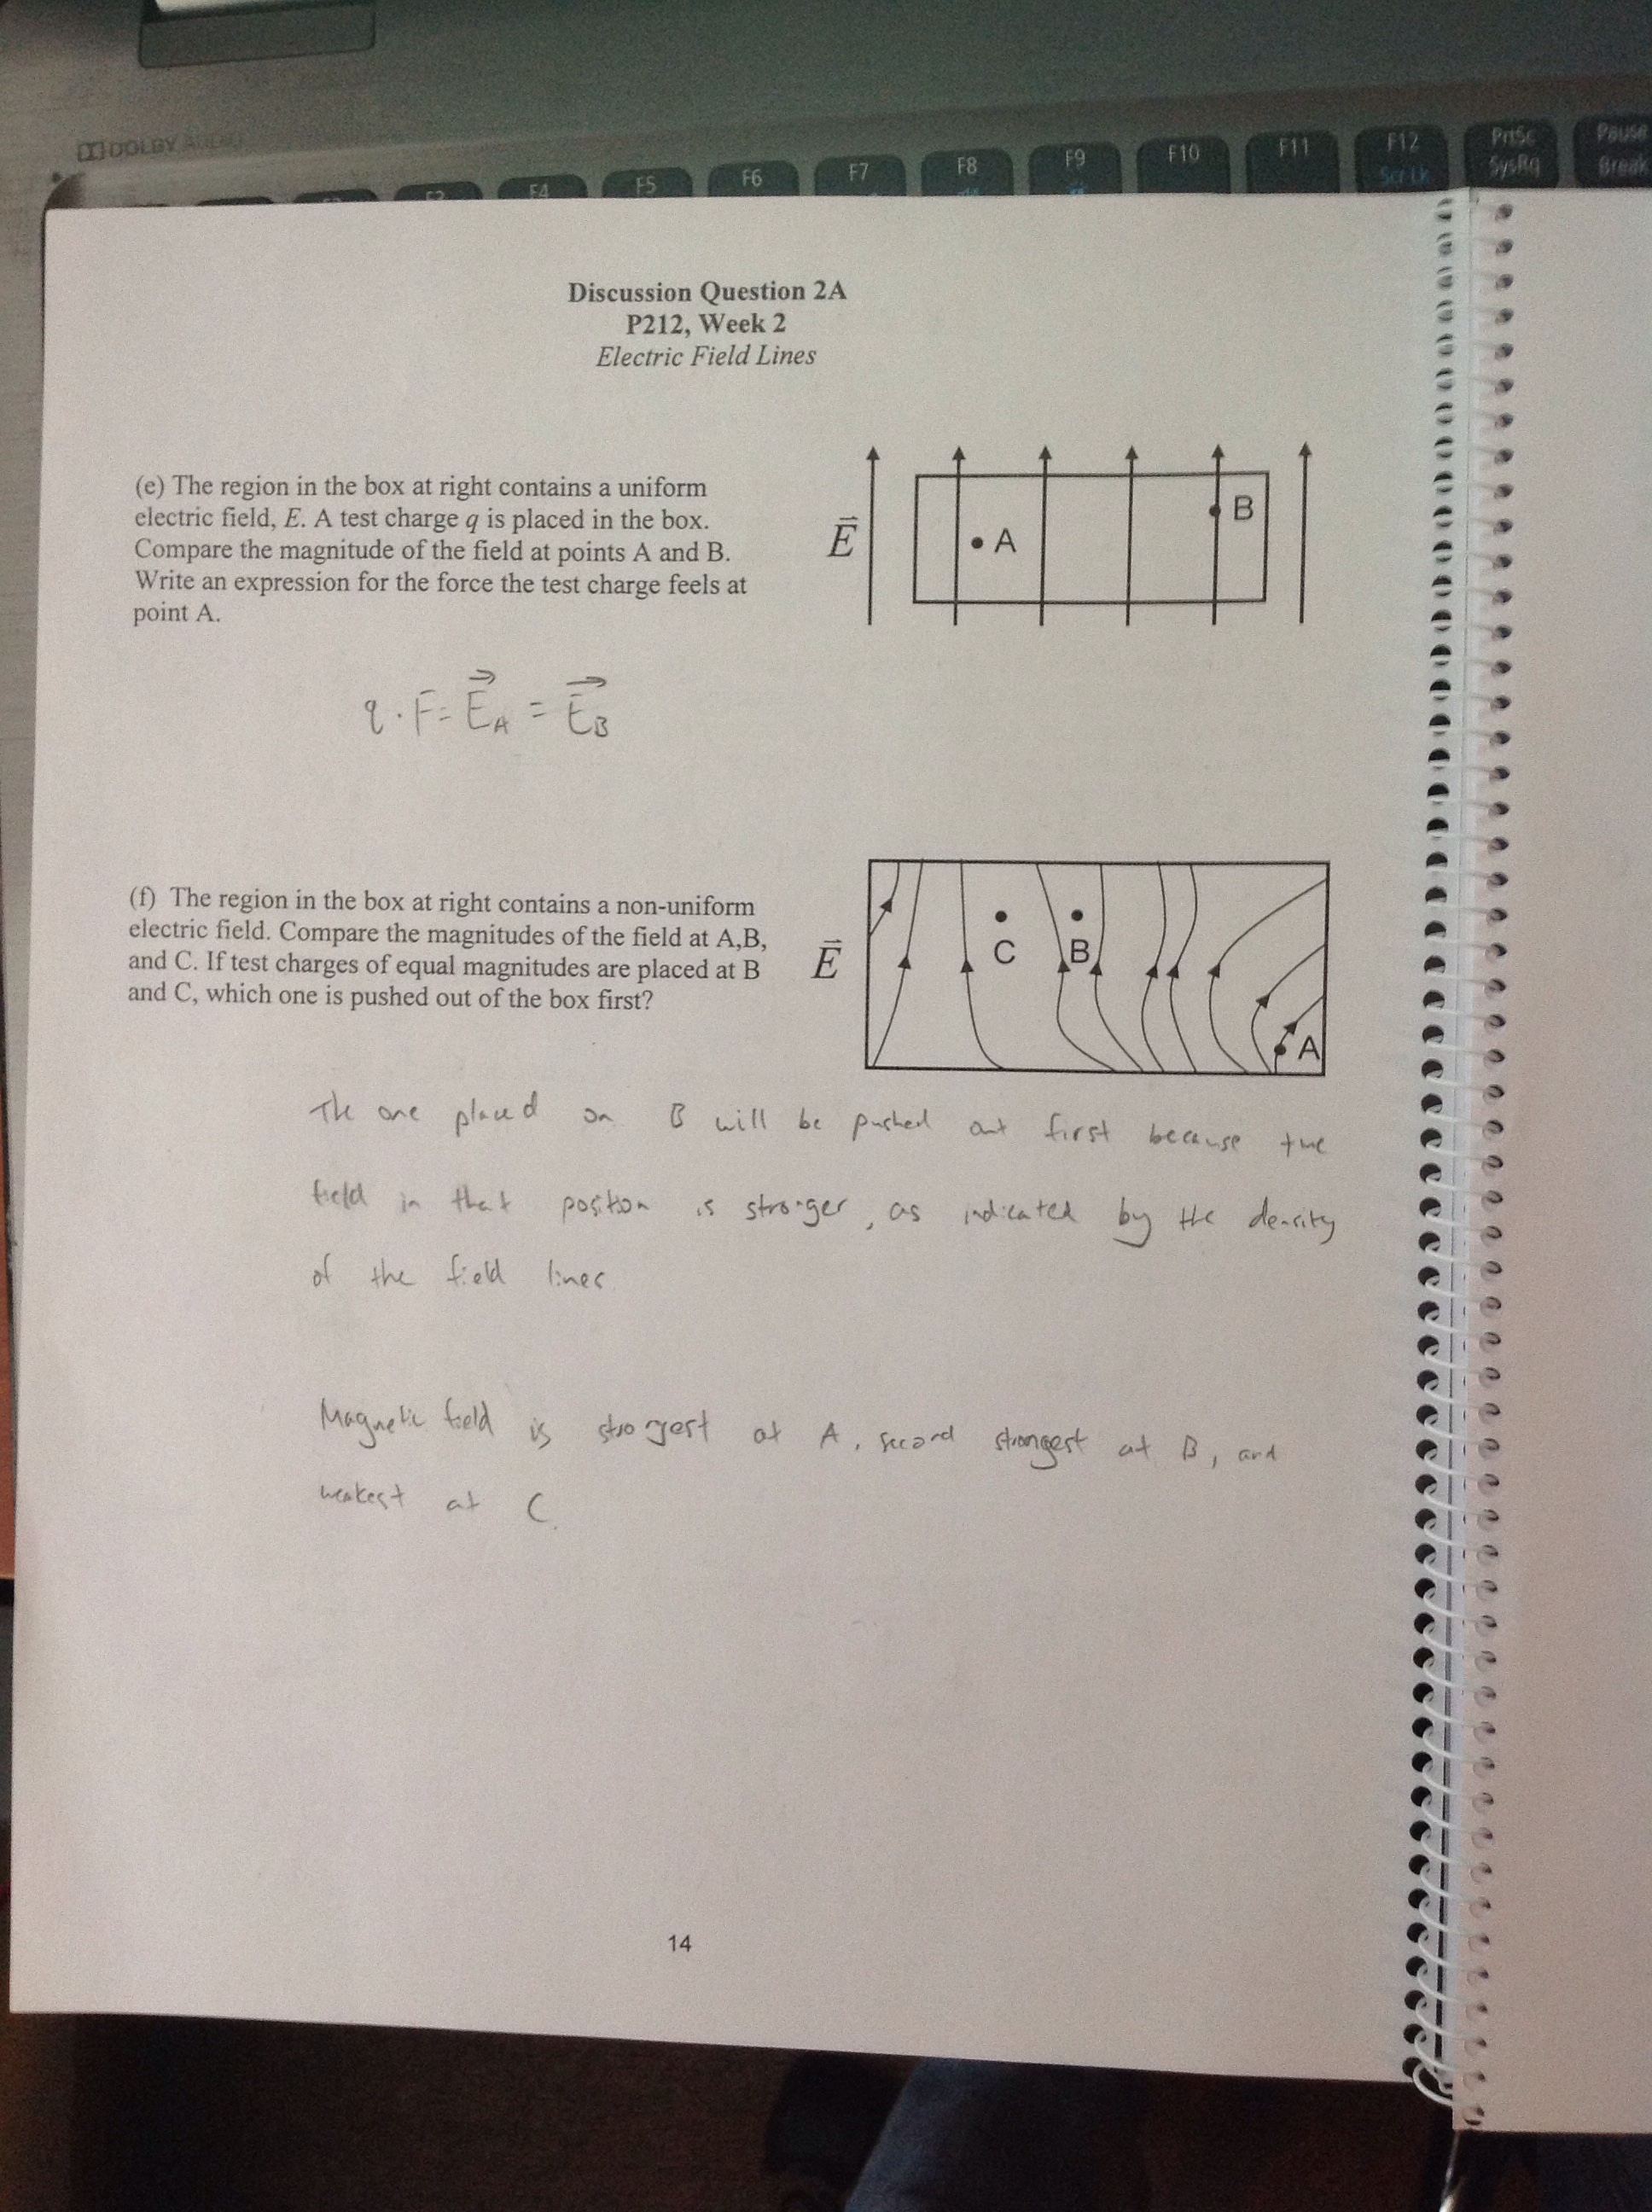 DOLBY AUDIO
F4 F5 F6 F7 F8 F9 F10 F11 F12 PrtSc Pause
Scr Lk SysRq Break
Discussion Question 2A
P212, Week 2
Electric Field Lines
(e) The region in the box at right contains a uniform
electric field, E. A test charge q is placed in the box.
Compare the magnitude of the field at points A and B.
Write an expression for the force the test charge feels at
point A.
E⃗
A
B
q · F = E⃗_A = E⃗_B
(f) The region in the box at right contains a non-uniform
electric field. Compare the magnitudes of the field at A,B,
and C. If test charges of equal magnitudes are placed at B
and C, which one is pushed out of the box first?
E⃗
C
B
A
The one placed on B will be pushed out first because the
field in that position is stronger, as indicated by the density
of the field lines
Magnetic field is strongest at A, second strongest at B, and
weakest at C.
14